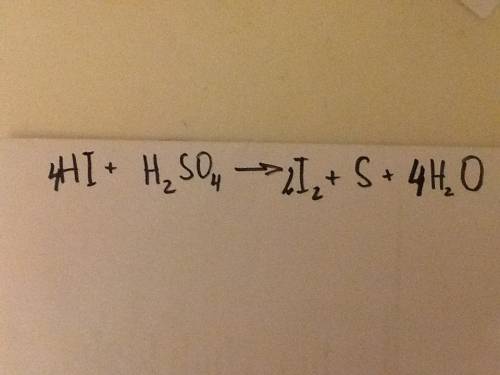 4HI + H₂SO₄ → 2I₂ + S + 4H₂O